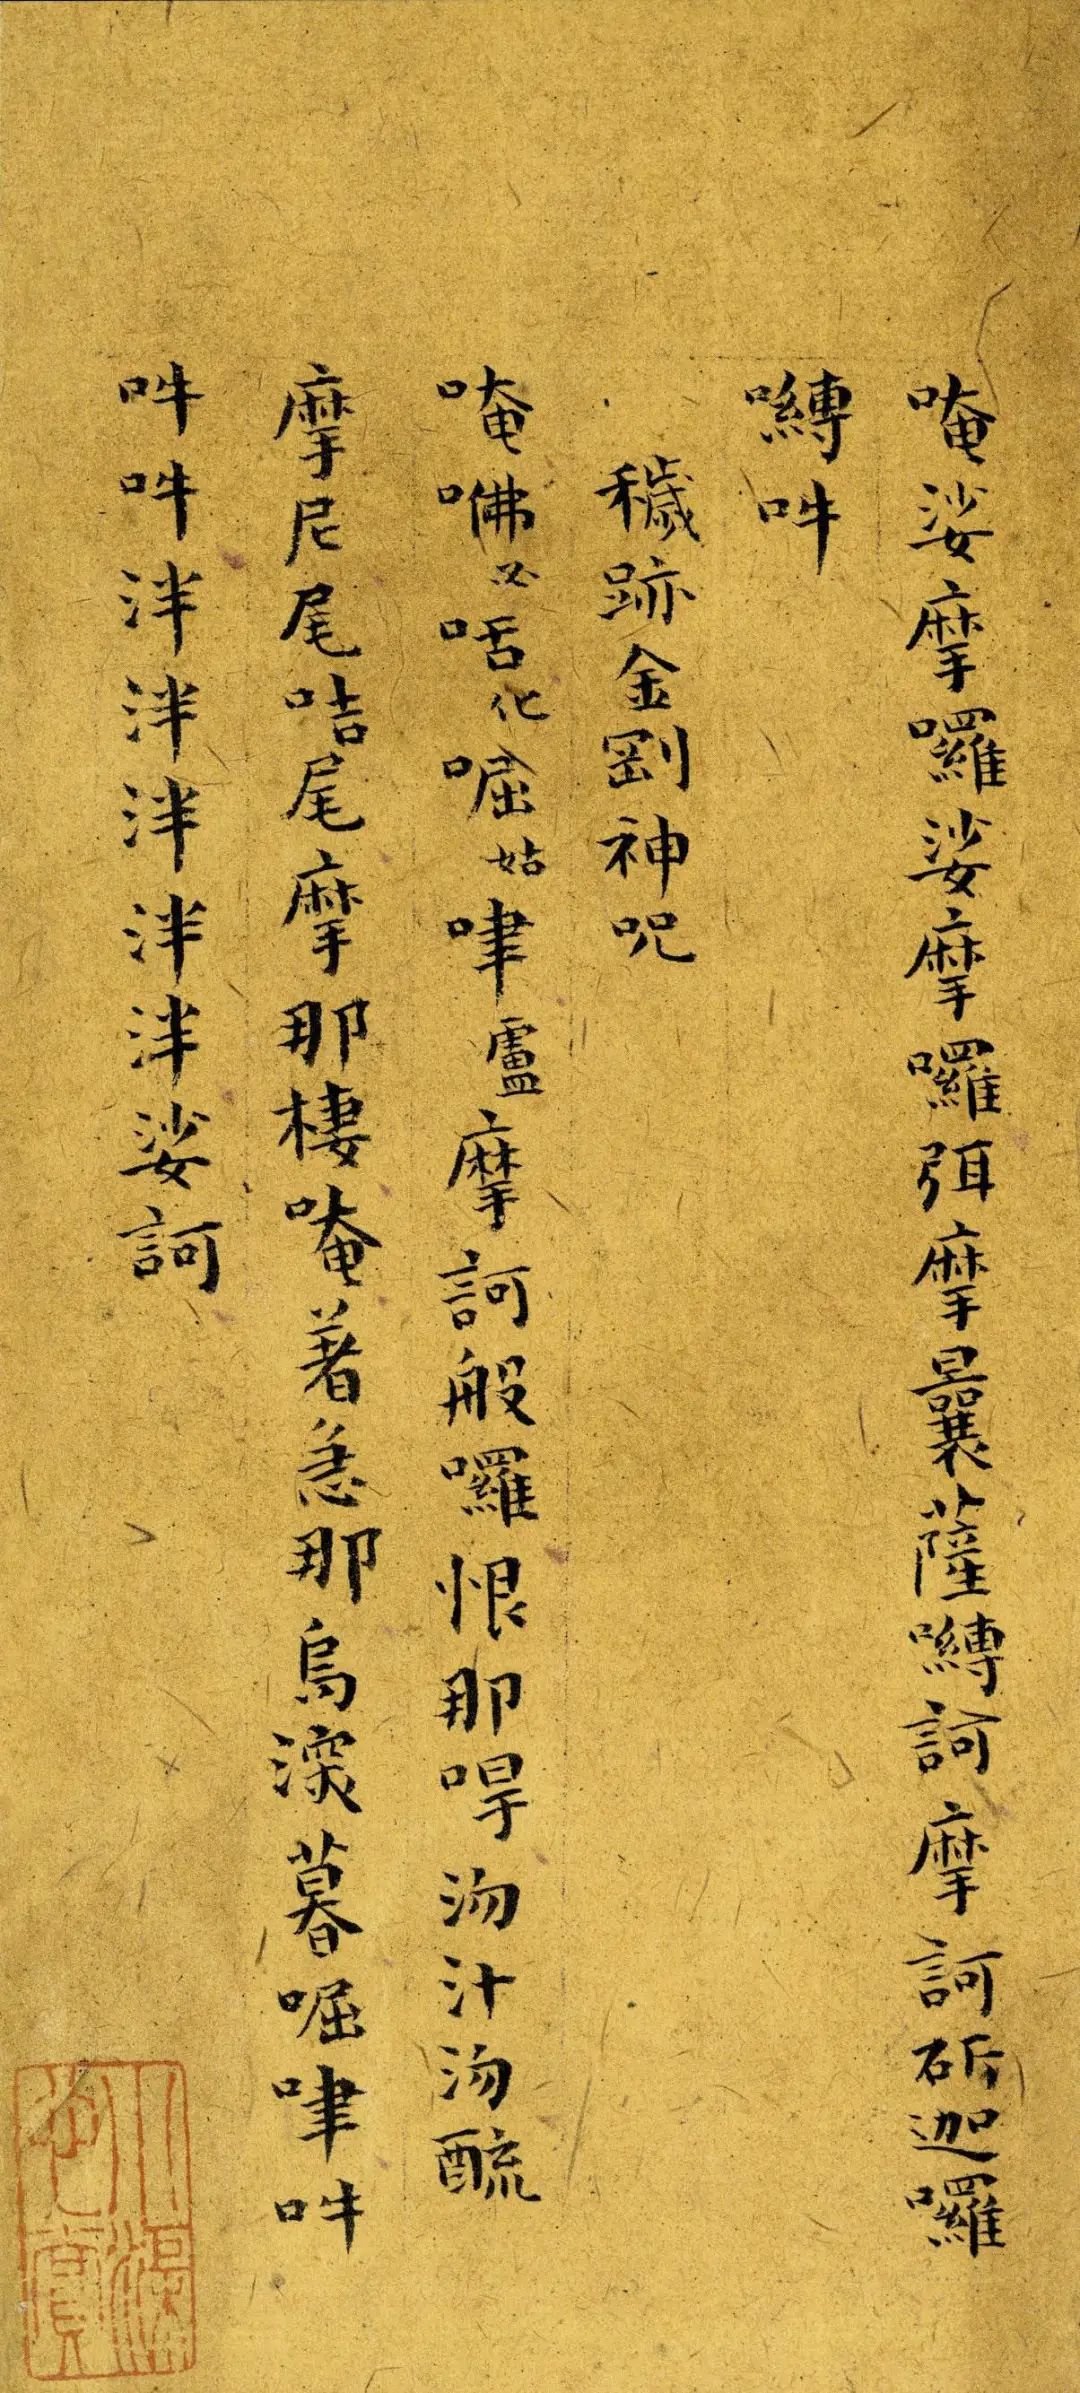 唵娑摩囉娑摩囉弭摩曩薩嚩訶摩訶斫迦囉
嚩吽
穢跡金剛神呪
唵咈必咶化啒姑㖀盧摩訶般囉恨那㖑沕汁沕醯
摩尼尾咭尾摩那棲唵著急那烏深暮啒㖀吽
吽吽泮泮泮泮泮娑訶